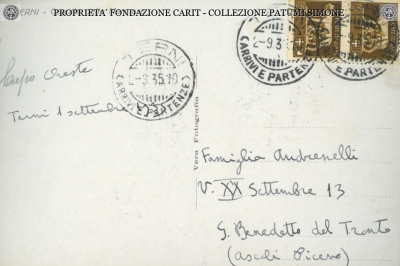 PROPRIETA' FONDAZIONE CARIT - COLLEZIONE PATUMI SIMONE
TERNI
2-9.35.19
(ARRIVI E PARTENZE)
2-9.3
(ARRIVI E PARTENZE)
PARTENZE)
Oreste
Terni 1 settembre
Vera Fotografia
Famiglia Andrenelli
V. XX Settembre 13
S. Benedetto del Tronto
(Ascoli Piceno)